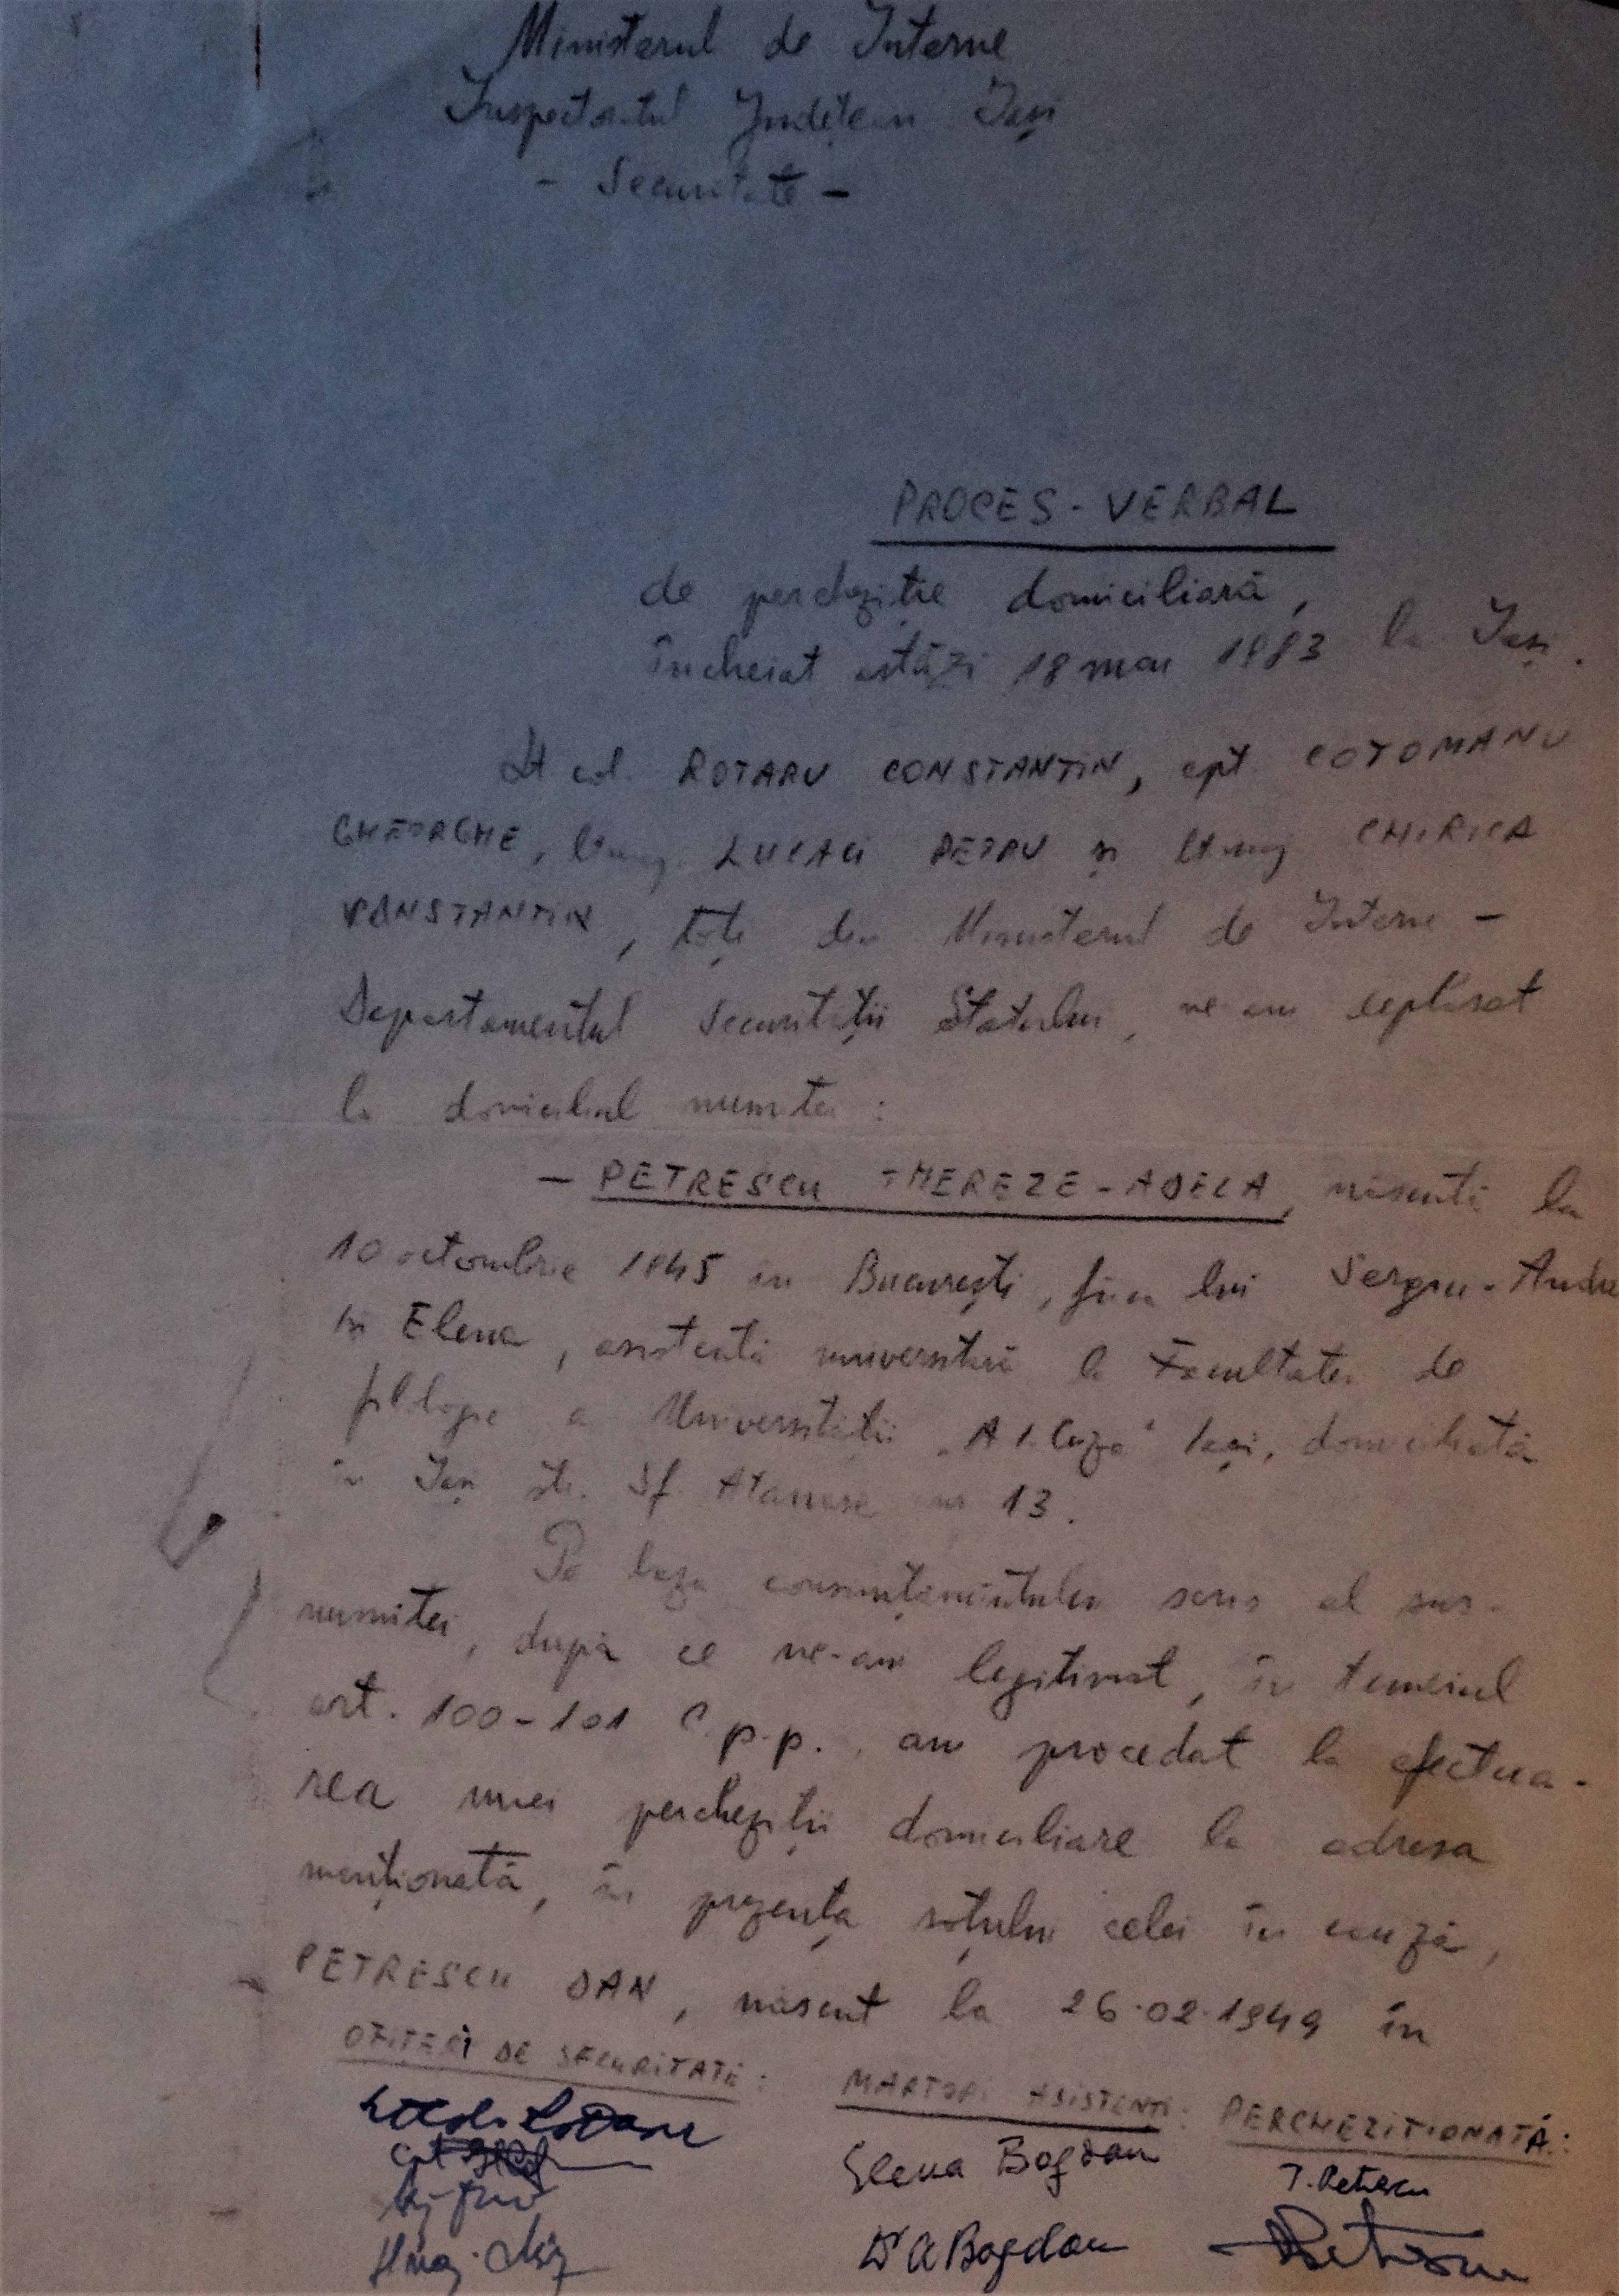 Ministerul de Interne
Inspectoratul Județean Iași
- Securitate -
PROCES-VERBAL
de percheziție domiciliară,
încheiat astăzi 18 mai 1983 la Iași.
Lt col. ROTARU CONSTANTIN, cpt COTOMANU
GHEORGHE, lt maj. LUCACI PETRU și lt maj CHIRICA
CONSTANTIN, toți din Ministerul de Interne -
Departamentul Securității Statului, ne-am deplasat
la domiciliul numitei :
- PETRESCU THEREZE-ADELA, născută la
10 octombrie 1945 în București, fiica lui Sergiu-Andu
și Elena, asistentă universitară la Facultatea de
filologie a Universității „Al. I. Cuza" Iași, domiciliată
în Iași str. Sf Atanasie nr 13.
Pe baza consimțămîntului scris al sus-
numitei, după ce ne-am legitimat, în temeiul
art. 100-101 C.p.p., am procedat la efectua-
rea unei percheziții domiciliare la adresa
menționată, în prezența soțului celei în cauză,
PETRESCU DAN, născut la 26.02.1949 în
OFIȚERI DE SECURITATE: MARTORI ASISTENȚI: PERCHEZIȚIONATĂ:
Elena Bogdan T. Petrescu
A Bogdan